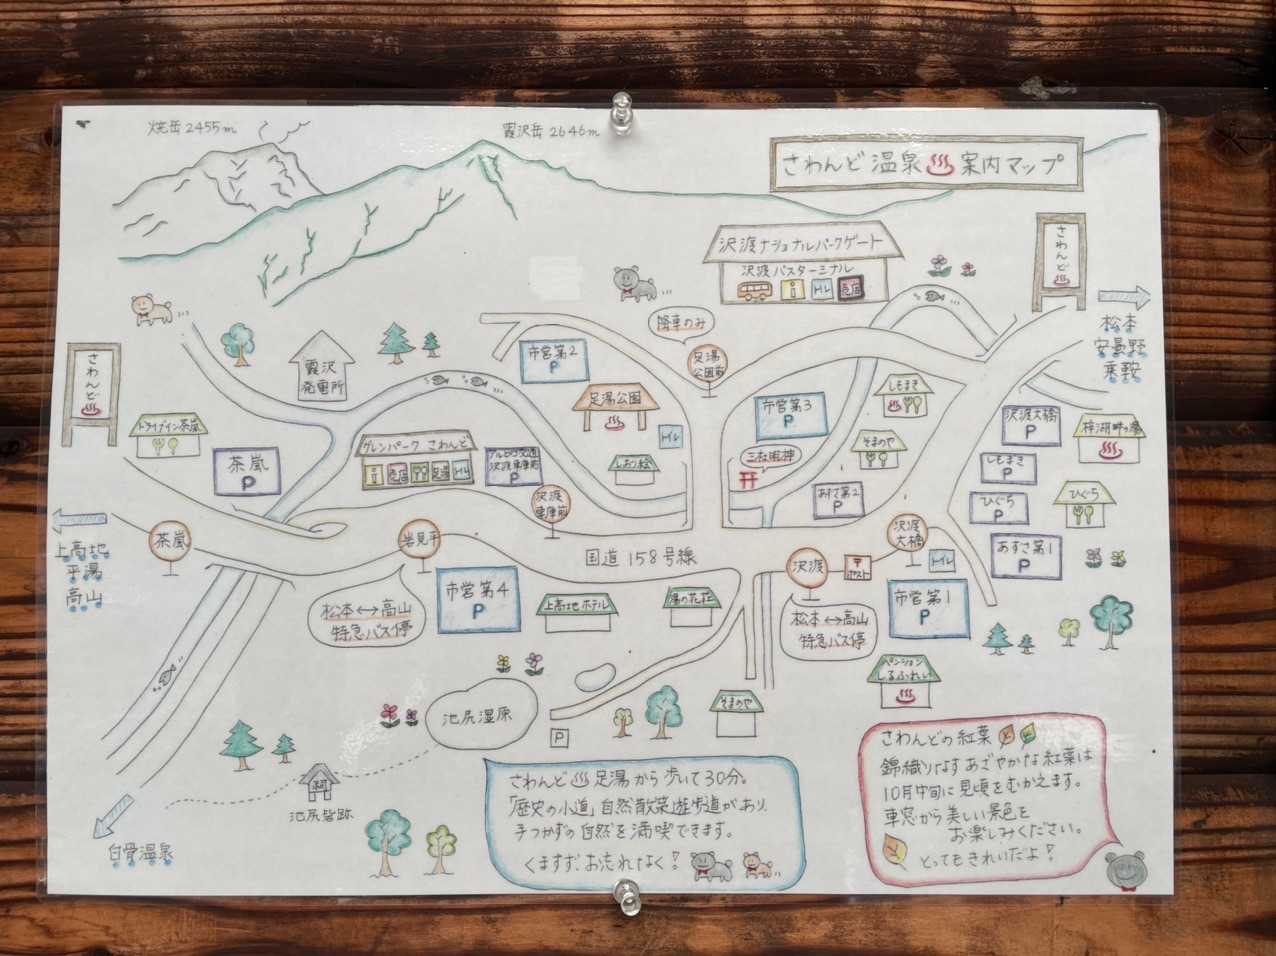 焼岳 2455m
霞沢岳 2646m
さわんど温泉♨案内マップ
沢渡ナショナルパークゲート
沢渡バスターミナル
i
トイレ
売店
さわんど♨
松本
安曇野
乗鞍
降車のみ
足湯
公園前
霞沢
発電所
市営第2
P
足湯公園
トイレ
しおり絵
市営第3
P
しもまき
そまのや
三社風神
あずさ第2
P
沢渡大橋
P
しもまき
P
ひぐち
P
あずさ第1
P
梓湖畔の湯
ひぐち
さわんど♨
ドライブイン茶嵐
茶嵐
P
グレンパーク さわんど
i
売店
トイレ
アルピコ交通
沢渡車庫前
P
沢渡
車庫前
上高地
平湯
高山
茶嵐
岩見平
国道158号線
沢渡
〒
ポスト
沢渡
大橋
トイレ
松本↔高山
特急バス停
市営第4
P
上高地ホテル
湯の花荘
松本↔高山
特急バス停
市営第1
P
ペンション
しるふれい
池尻湿原
P
そまのや
池尻砦跡
白骨温泉
さわんど♨足湯から歩いて30分。
「歴史の小道」自然散策遊歩道があり、
手つかずの自然を満喫できます。
くますず、お忘れなく!
さわんどの紅葉
錦織りなすあざやかな紅葉は
10月中旬に見頃をむかえます。
車窓から美しい景色を
お楽しみください。
とってもきれいだよ!